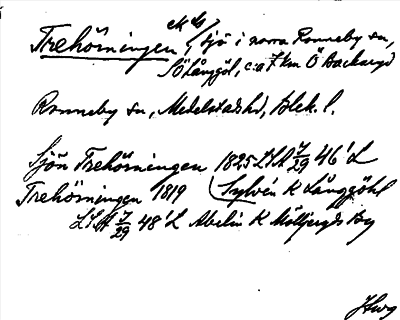 Trehörningen, sjö i norra Ronneby sn,
SÖ Långgöl, c:a 7 km Ö Backaryd
Ronneby sn, Medelstads hd, Blek. l.
Sjön Trehörningen 1825 LSA J/29 46 'L
Trehörningen 1819 Sylvén K Långgöhl
LSA J/29 48 'L Abelin K Möljeryds By